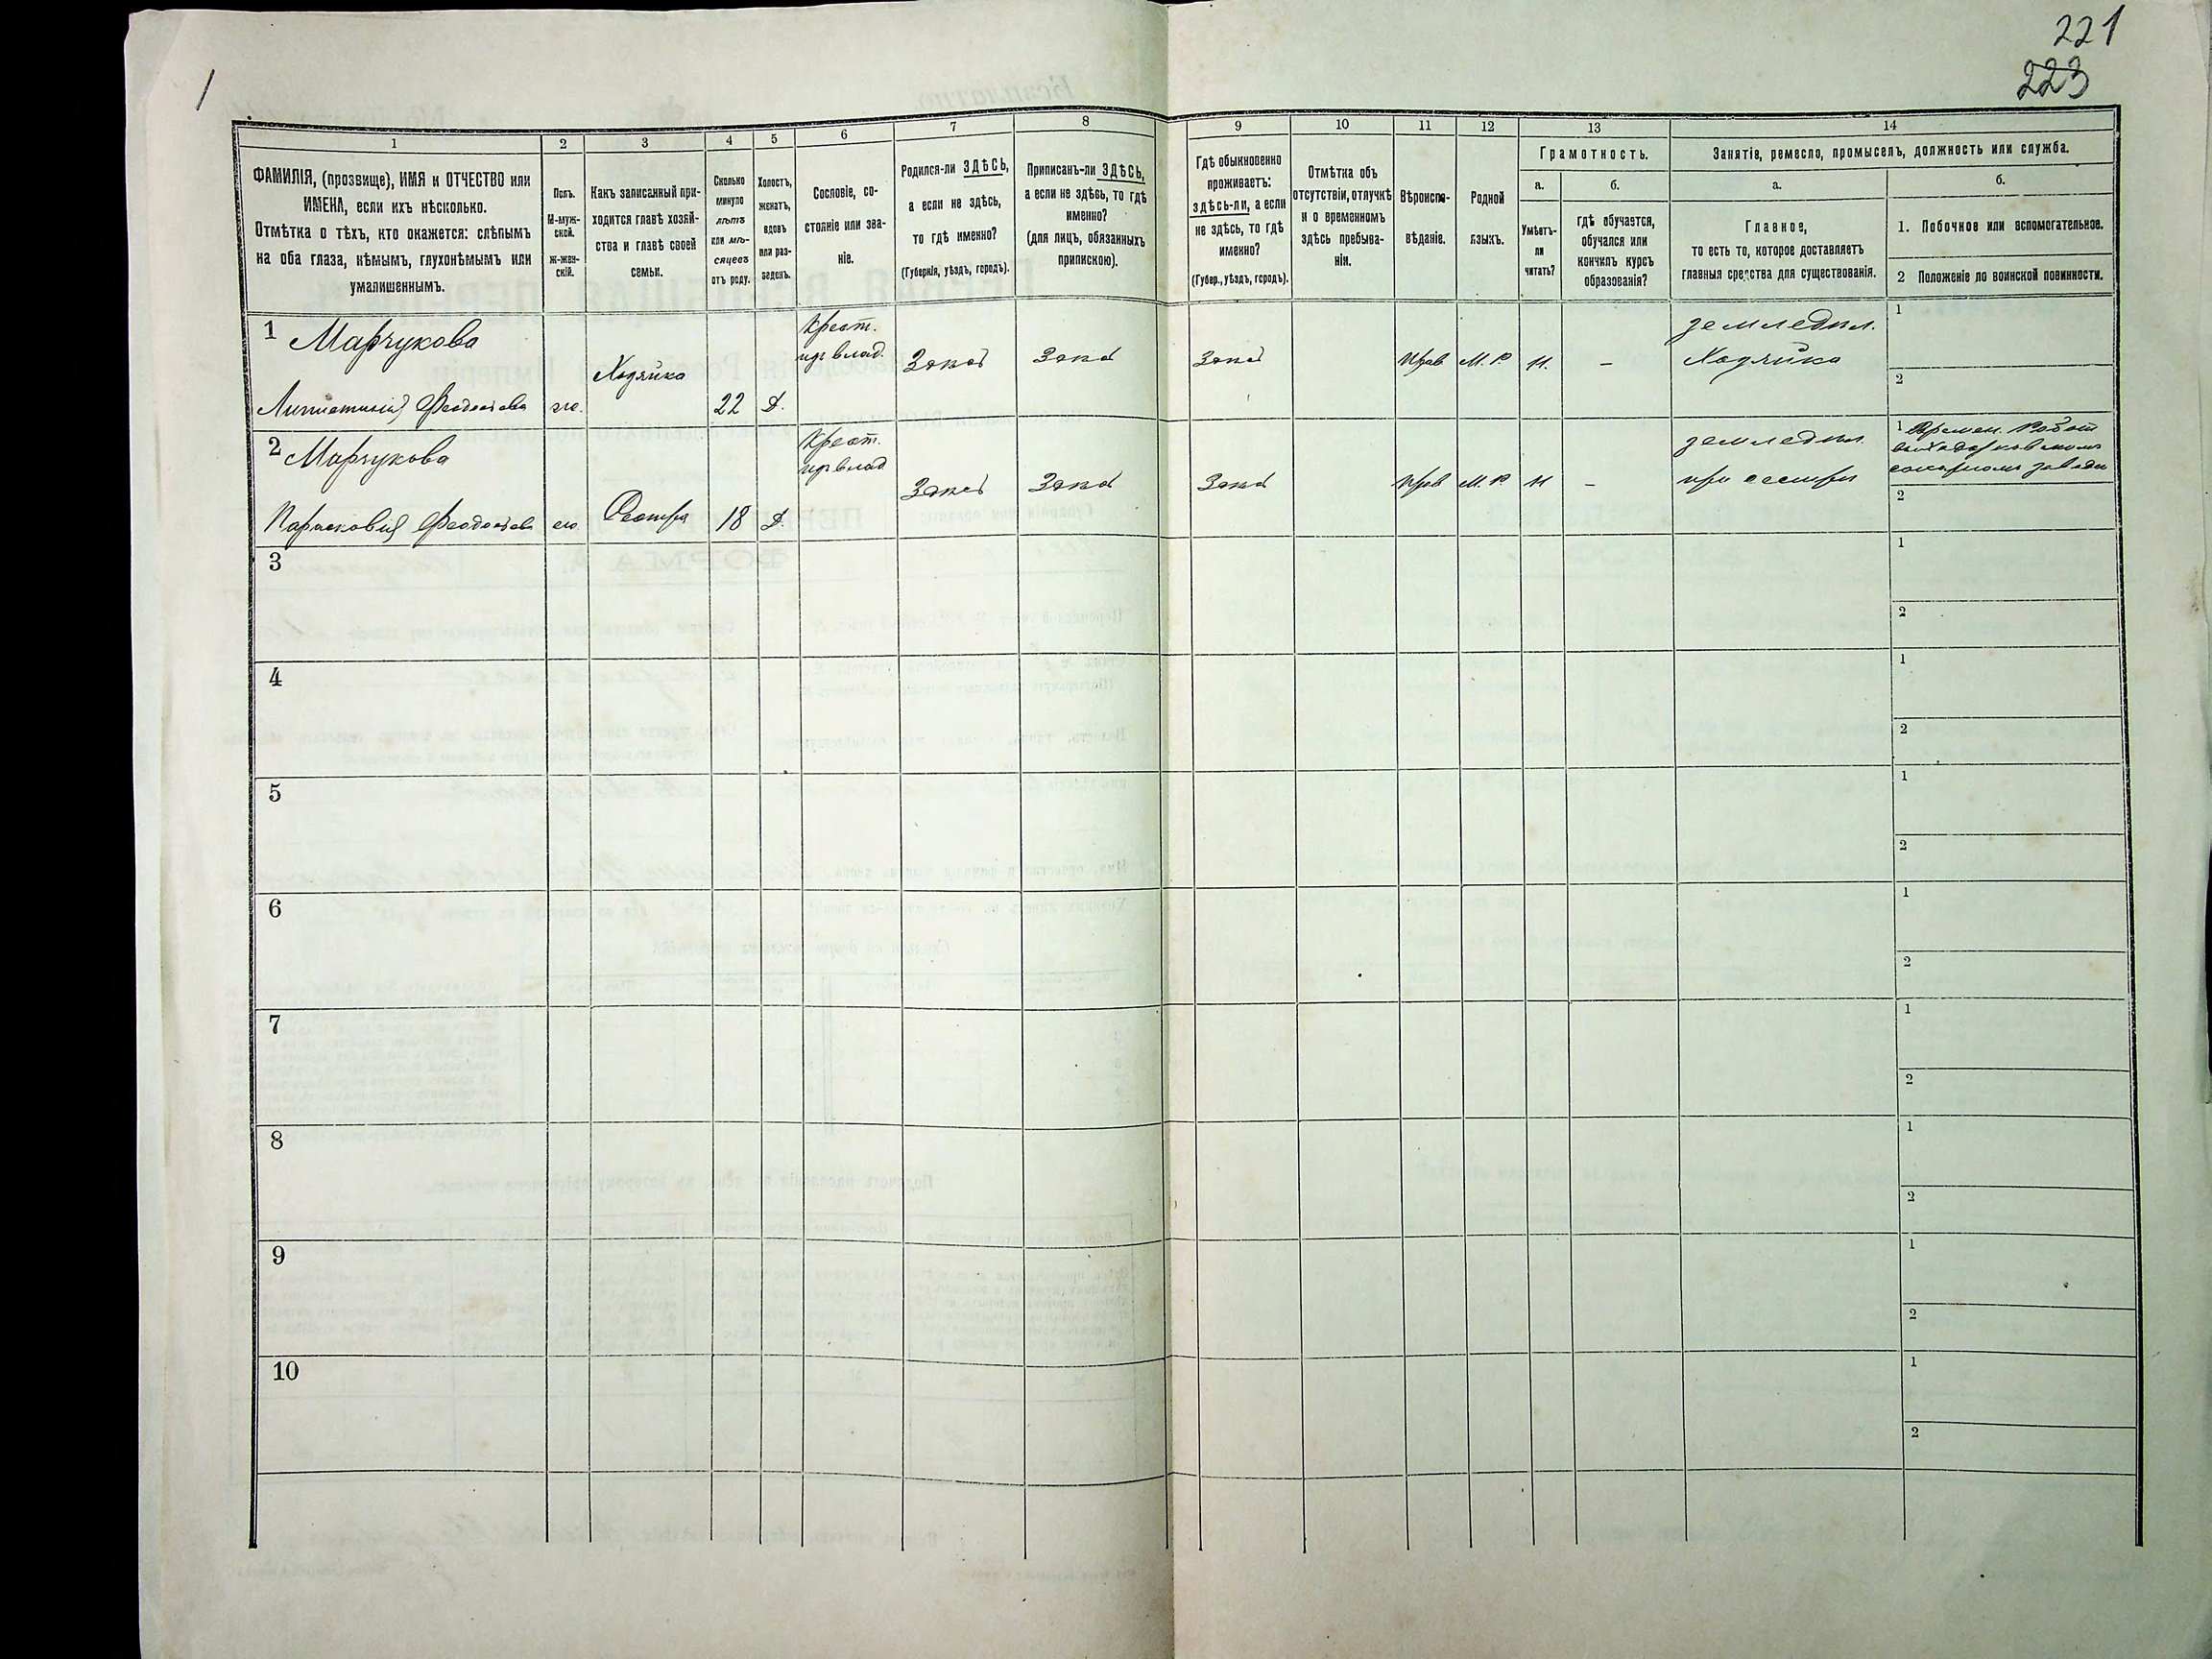 221
223
1
1
2
3
4
5
6
7
8
9
10
11
12
13
14
ФАМИЛІЯ, (прозвище), ИМЯ и ОТЧЕСТВО или
ИМЕНА, если ихъ нѣсколько.
Отмѣтка о тѣхъ, кто окажется: слѣпымъ
на оба глаза, нѣмымъ, глухонѣмымъ или
умалишеннымъ.
Полъ.
М-муж-
ской.
Ж-жен-
скій.
Какъ записанный при-
ходится главѣ хозяй-
ства и главѣ своей
семьи.
Сколько
минуло
лѣтъ
или мѣ-
сяцевъ
отъ роду.
Холостъ,
женатъ,
вдовъ
или раз-
веденъ.
Сословіе, со-
стояніе или зва-
ніе.
Родился-ли ЗДѢСЬ,
а если не здѣсь,
то гдѣ именно?
(Губернія, уѣздъ, городъ).
Приписанъ-ли ЗДѢСЬ,
а если не здѣсь, то гдѣ
именно?
(для лицъ, обязанныхъ
припискою).
Гдѣ обыкновенно
проживаетъ:
здѣсь-ли, а если
не здѣсь, то гдѣ
именно?
(Губер., уѣздъ, городъ).
Отмѣтка объ
отсутствіи, отлучкѣ
и о временномъ
здѣсь пребыва-
ніи.
Вѣроиспо-
вѣданіе.
Родной
языкъ.
Грамотность.
а.
Умѣетъ-
ли
читать?
б.
гдѣ обучается,
обучался или
кончилъ курсъ
образованія?
Занятіе, ремесло, промыселъ, должность или служба.
а.
Главное,
то есть то, которое доставляетъ
главныя средства для существованія.
б.
1. Побочное или вспомогательное.
2 Положеніе по воинской повинности.
1 Марчукова
Феодосіева
Хозяйка
22
Д.
Крест.
Прав
М. Р.
Н.
–
земледѣл.
Хозяйка
1
2
2 Марчукова
Парасковія Феодосіева
Сестра
18
Д.
Крест.
Прав
М. Р.
Н
–
земледѣл.
при сестрѣ
1 Времен. Работ
сахарномъ заводѣ
2
3
1
2
4
1
2
5
1
2
6
1
2
7
1
2
8
1
2
9
1
2
10
1
2